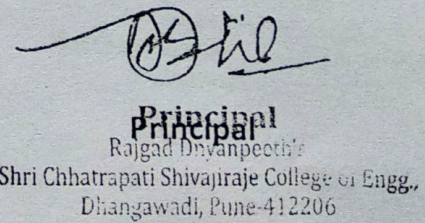 Principal
Principal
Rajgad Dnyanpeeth's
Shri Chhatrapati Shivajiraje College of Engg.,
Dhangawadi, Pune-412206